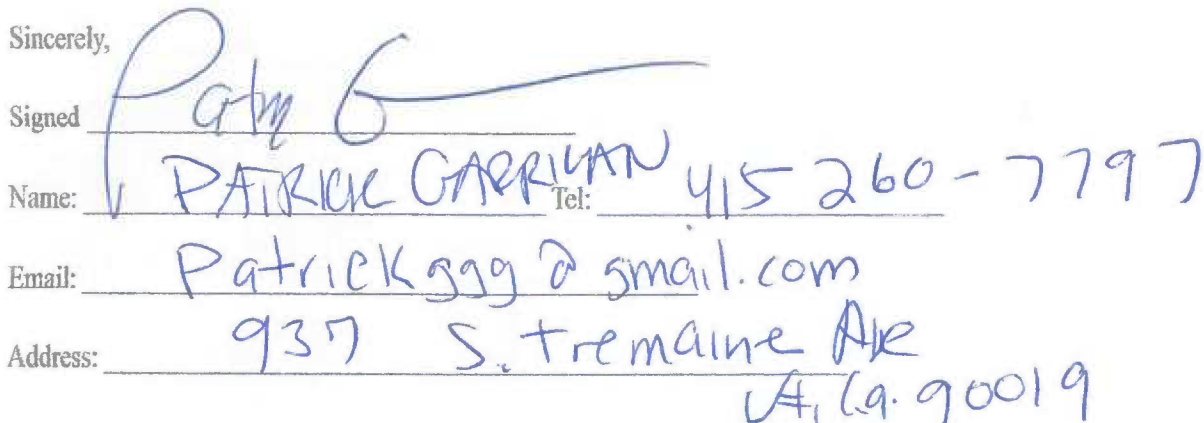 Sincerely,
Signed
Name: PATRICK GARRIGAN Tel: 415 260-7797
Email: Patrickggg@gmail.com
Address: 937 S. Tremaine Ave
LA, Ca. 90019